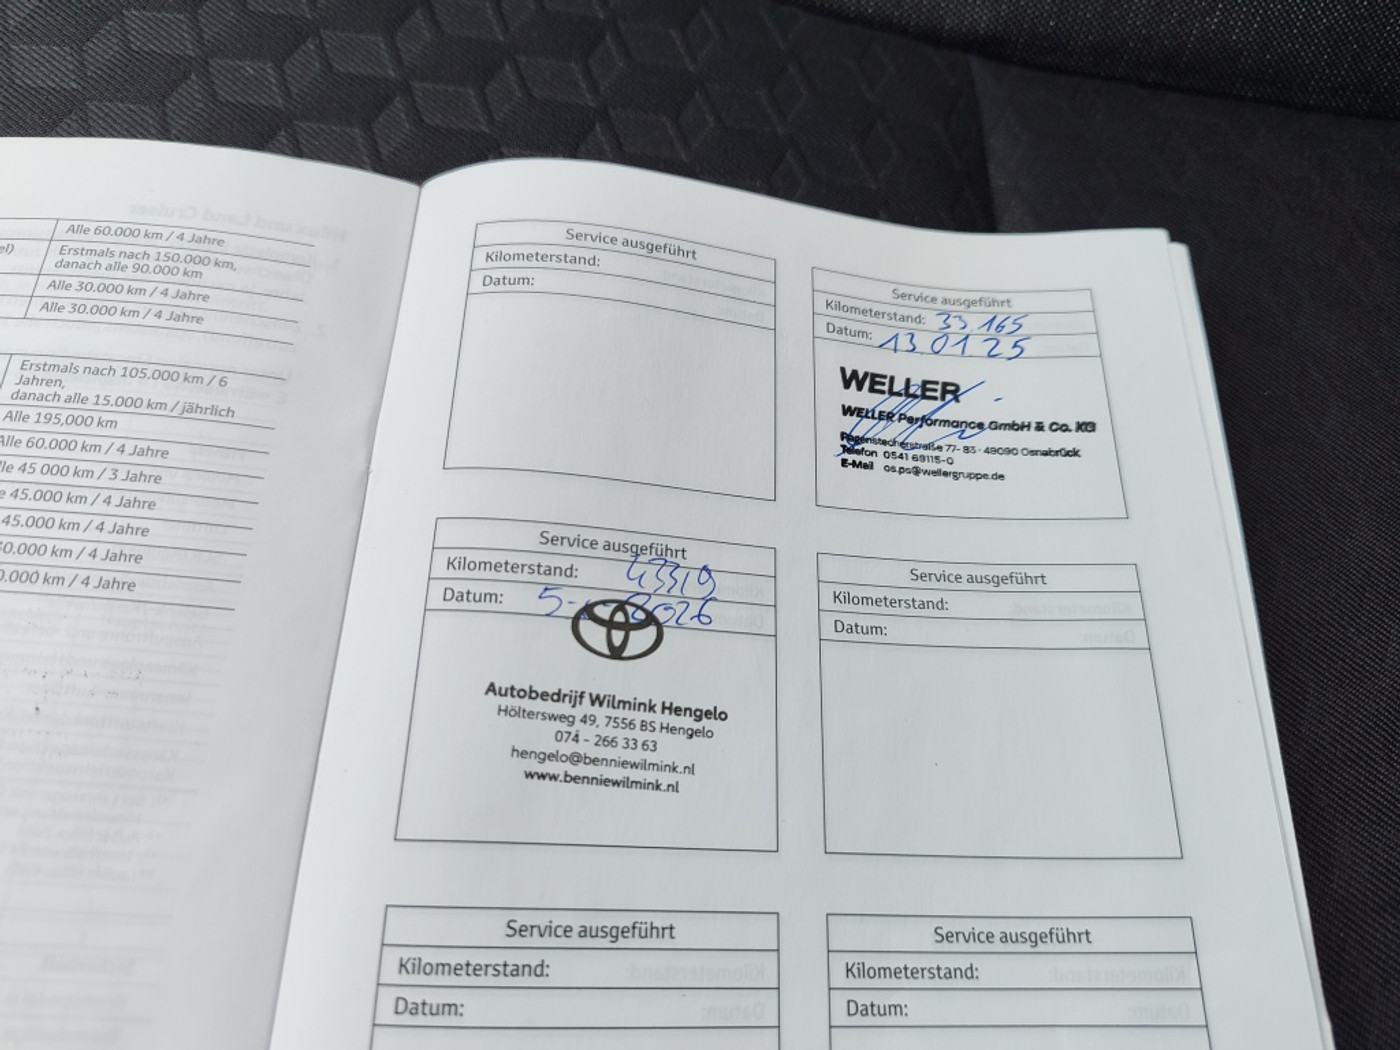 Alle 60.000 km / 4 Jahre
Erstmals nach 150.000 km,
danach alle 90.000 km
Alle 30.000 km / 4 Jahre
Alle 30.000 km / 4 Jahre
Erstmals nach 105.000 km / 6
Jahren,
danach alle 15.000 km / jährlich
Alle 195,000 km
Alle 60.000 km / 4 Jahre
lle 45 000 km / 3 Jahre
e 45.000 km / 4 Jahre
45.000 km / 4 Jahre
0.000 km / 4 Jahre
0.000 km / 4 Jahre
Service ausgeführt
Kilometerstand:
Datum:
Service ausgeführt
Kilometerstand: 33.165
Datum: 13.01.25
WELLER
WELLER Performance GmbH & Co. KG
Pagenstecherstraße 77-83 · 49090 Osnabrück
Telefon 0541 69115-0
E-Mail os.ps@wellergruppe.de
Service ausgeführt
Kilometerstand: 43319
Datum: 2026
Autobedrijf Wilmink Hengelo
Höltersweg 49, 7556 BS Hengelo
074 - 266 33 63
hengelo@benniewilmink.nl
www.benniewilmink.nl
Service ausgeführt
Kilometerstand:
Datum:
Service ausgeführt
Kilometerstand:
Datum:
Service ausgeführt
Kilometerstand:
Datum: